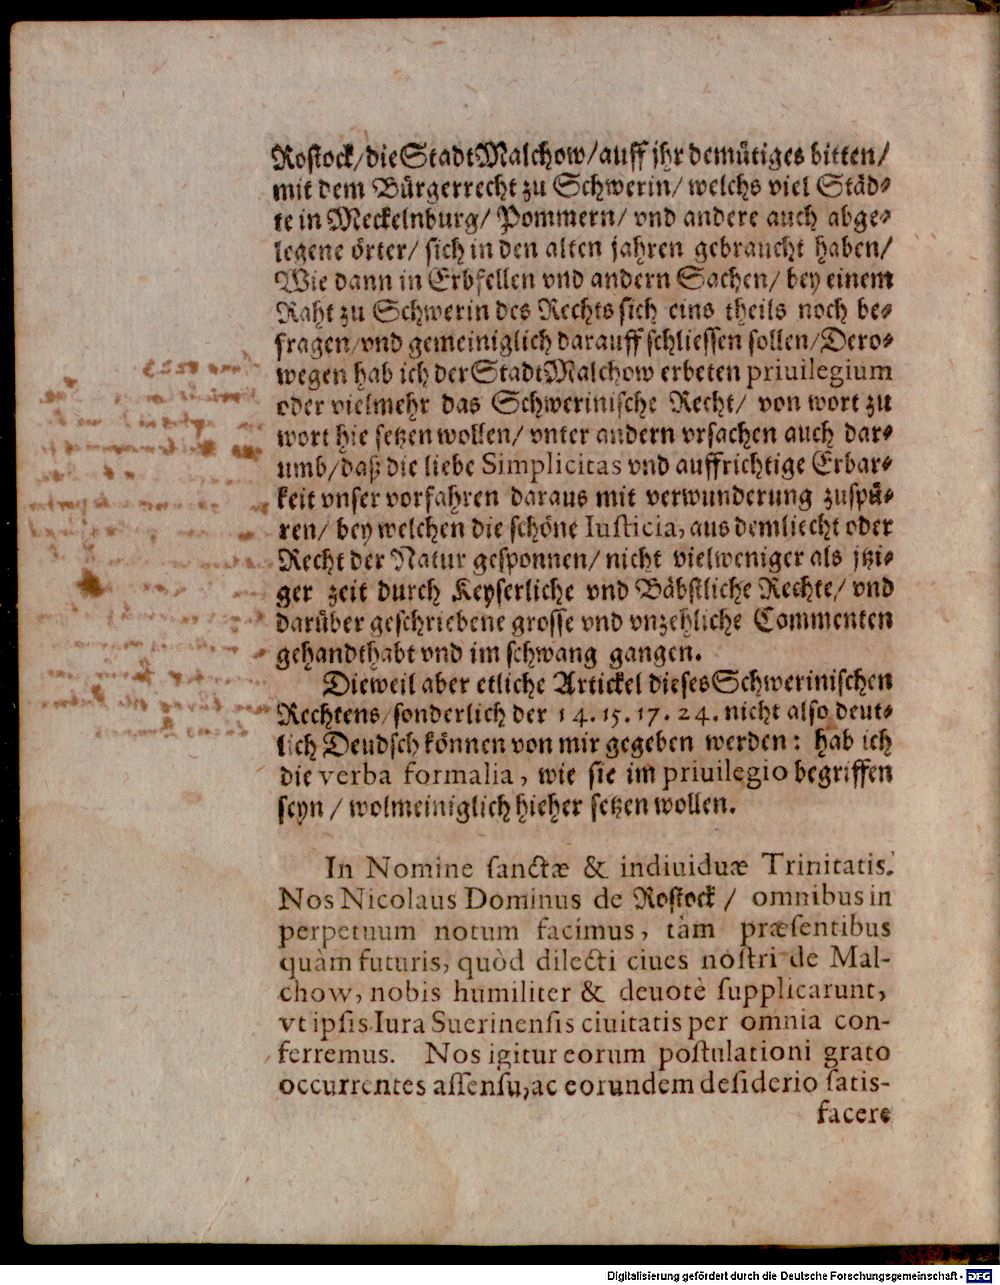 Rostock/die Stadt Malchow/auff jhr demütiges bitten/
mit dem Bürgerrecht zu Schwerin/ welchs viel Städ⸗
te in Meckelnburg/ Pommern/ vnd andere auch abge⸗
legene örter/ sich in den alten jahren gebraucht haben/
Wie dann in Erbfellen vnd andern Sachen/ bey einem
Raht zu Schwerin des Rechts sich eins theils noch be⸗
fragen/vnd gemeiniglich darauff schliessen sollen/Dero⸗
wegen hab ich der Stadt Malchow erbeten priuilegium
oder vielmehr das Schwerinische Recht/ von wort zu
wort hie setzen wollen/ vnter andern vrsachen auch dar⸗
umb/daß die liebe Simplicitas vnd auffrichtige Erbar⸗
keit vnser vorfahren daraus mit verwunderung zuspü⸗
ren/ bey welchen die schöne Iusticia, aus dem liecht oder
Recht der Natur gesponnen/ nicht vielweniger als jtzi⸗
ger zeit durch Keyserliche vnd Bäbstliche Rechte/ vnd
darüber geschriebene grosse vnd vnzehliche Commenten
gehandthabt vnd im schwang gangen.
Dieweil aber etliche Artickel dieses Schwerinischen
Rechtens/sonderlich der 14. 15. 17. 24. nicht also deut⸗
lich Deudsch können von mir gegeben werden: hab ich
die verba formalia, wie sie im priuilegio begriffen
seyn/ wolmeiniglich hieher setzen wollen.
In Nomine sanctæ & indiuiduæ Trinitatis.
Nos Nicolaus Dominus de Rostock/ omnibus in
perpetuum notum facimus, tàm præsentibus
quàm futuris, quòd dilecti ciues nostri de Mal-
chow, nobis humiliter & deuotè supplicarunt,
vt ipsis Iura Suerinensis ciuitatis per omnia con-
ferremus. Nos igitur eorum postulationi grato
occurrentes assensu, ac eorundem desiderio satis-
facere
Digitalisierung gefördert durch die Deutsche Forschungsgemeinschaft - DFG